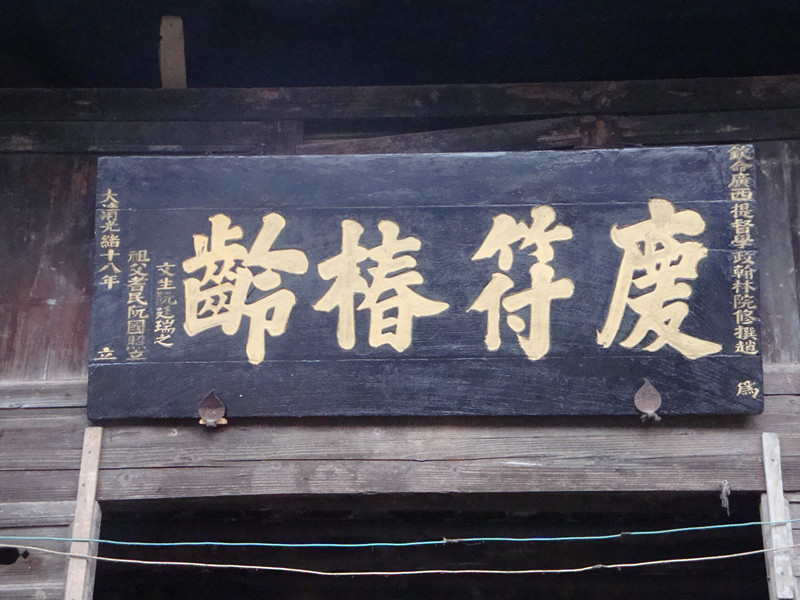 欽命廣西提督學政翰林院修撰趙 為
慶符椿齡
文生阮廷瑞之
祖父耆民阮國照立
大清光緒十八年 立